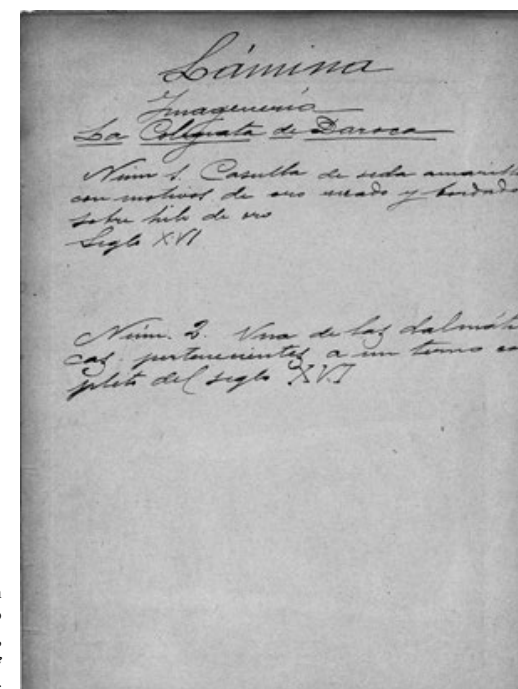 Lámina
Imaginería
La Colegiata de Daroca
Núm 1. Casulla de seda amarill
con motivos de oro y bordado
sobre hilo de oro
Siglo XVI
Núm. 2. Una de las dalmáti
cas pertenecientes a un terno co
pleto del siglo XVI